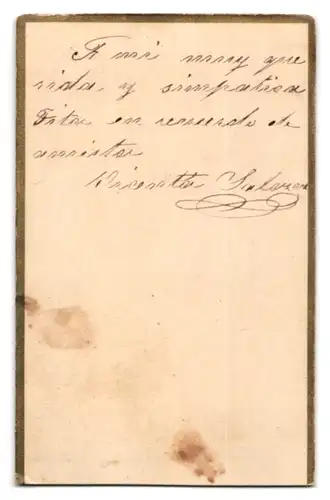 A mi muy que
rida y simpatica
Fita en recuerdo de
amista
Vicenta Salazar